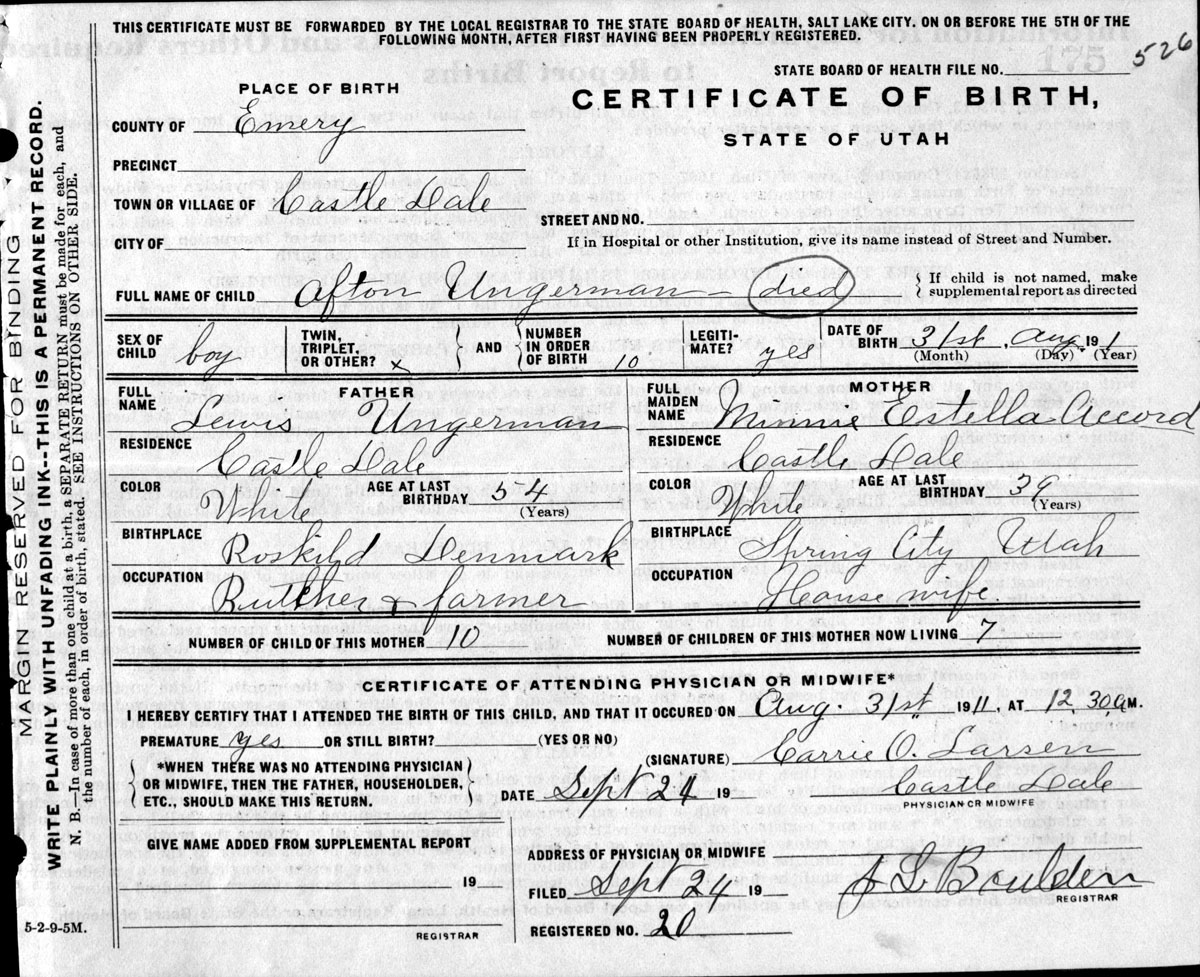 THIS CERTIFICATE MUST BE FORWARDED BY THE LOCAL REGISTRAR TO THE STATE BOARD OF HEALTH, SALT LAKE CITY. ON OR BEFORE THE 5TH OF THE
FOLLOWING MONTH, AFTER FIRST HAVING BEEN PROPERLY REGISTERED.
526
STATE BOARD OF HEALTH FILE NO.
175
PLACE OF BIRTH
CERTIFICATE OF BIRTH,
COUNTY OF Emery
STATE OF UTAH
PRECINCT
TOWN OR VILLAGE OF Castle Dale
STREET AND NO.
CITY OF
If in Hospital or other Institution, give its name instead of Street and Number.
FULL NAME OF CHILD Afton Ungerman – died
{ If child is not named, make
supplemental report as directed
SEX OF CHILD boy
TWIN, TRIPLET, OR OTHER? x } AND { NUMBER IN ORDER OF BIRTH 10
LEGITI- MATE? yes
DATE OF BIRTH 31st, Aug 191 1
(Month) (Day) (Year)
FATHER
FULL NAME Lewis Ungerman
RESIDENCE Castle Dale
COLOR White AGE AT LAST BIRTHDAY 54
(Years)
BIRTHPLACE Roskild Denmark
OCCUPATION Butcher & farmer
MOTHER
FULL MAIDEN NAME Minnie Estella Accord
RESIDENCE Castle Dale
COLOR White AGE AT LAST BIRTHDAY 39
(Years)
BIRTHPLACE Spring City Utah
OCCUPATION House wife
NUMBER OF CHILD OF THIS MOTHER 10 NUMBER OF CHILDREN OF THIS MOTHER NOW LIVING 7
CERTIFICATE OF ATTENDING PHYSICIAN OR MIDWIFE*
I HEREBY CERTIFY THAT I ATTENDED THE BIRTH OF THIS CHILD, AND THAT IT OCCURED ON Aug. 31st 1911, AT 12,30 a M.
PREMATURE yes OR STILL BIRTH? (YES OR NO)
(SIGNATURE) Carrie O. Larsen
*WHEN THERE WAS NO ATTENDING PHYSICIAN
OR MIDWIFE, THEN THE FATHER, HOUSEHOLDER,
ETC., SHOULD MAKE THIS RETURN.
DATE Sept 24 19 Castle Dale
PHYSICIAN OR MIDWIFE
GIVE NAME ADDED FROM SUPPLEMENTAL REPORT
19
REGISTRAR
ADDRESS OF PHYSICIAN OR MIDWIFE
FILED Sept 24 19 J L Boulden
REGISTRAR
REGISTERED NO. 20
5-2-9-5M.
MARGIN RESERVED FOR BINDING
WRITE PLAINLY WITH UNFADING INK--THIS IS A PERMANENT RECORD.
N. B.—In case of more than one child at a birth, a SEPARATE RETURN must be made for each, and
the number of each, in order of birth, stated. SEE INSTRUCTIONS ON OTHER SIDE.